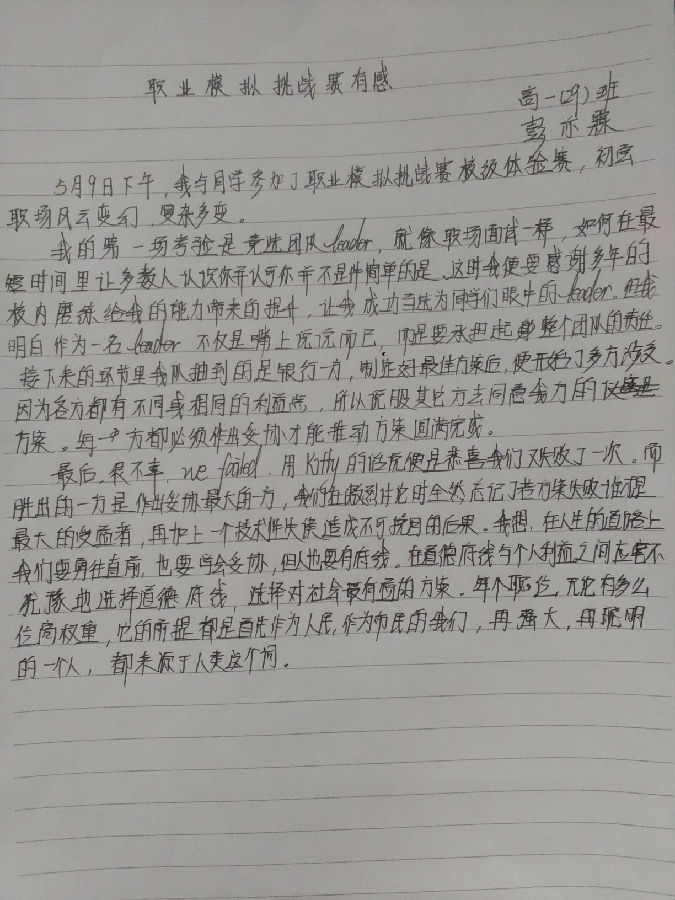 职业模拟挑战赛有感
高一(29)班
彭示霖
5月9日下午,我与同学参加了职业模拟挑战赛校级体验赛,初尝
职场风云变幻,复杂多变。
我的第一场考验是竞选团队leader,就像职场面试一样,如何在最
短时间里让多数人认识你并认可你并不是件简单的是。这时我便要感谢多年的
校内磨练给我的能力带来的提升,让我成功当选为同学们眼中的leader。但我
明白作为一名leader不仅是嘴上说说而已,而是要承担起整个团队的责任。
接下来的环节里我队抽到的是银行一方,制定好最佳方案后,便开始了多方涉交。
因为各方都有不同或相同的利益点,所以说服其它方去同意我方的
方案。每一方都必须作出妥协才能推动方案圆满完成。
最后,很不幸,we failed.用Kitty的话说便是恭喜我们又失败了一次。而
胜出的一方是作出妥协最大的一方,我们在激烈讨论时全然忘记了若方案失败谁是
最大的受益者,再加上一个技术性失误造成不可挽回的后果。我想,在人生的道路上
我们要勇往直前,也要学会妥协,但人也要有底线。在道德底线与个人利益之间应毫不
犹豫地选择道德底线,选择对社会最有益的方案。每个职位,无论有多么
位高权重,它的前提都是首先作为人民,作为市民的我们,再强大,再聪明
的一个人,都来源于人类这个词。